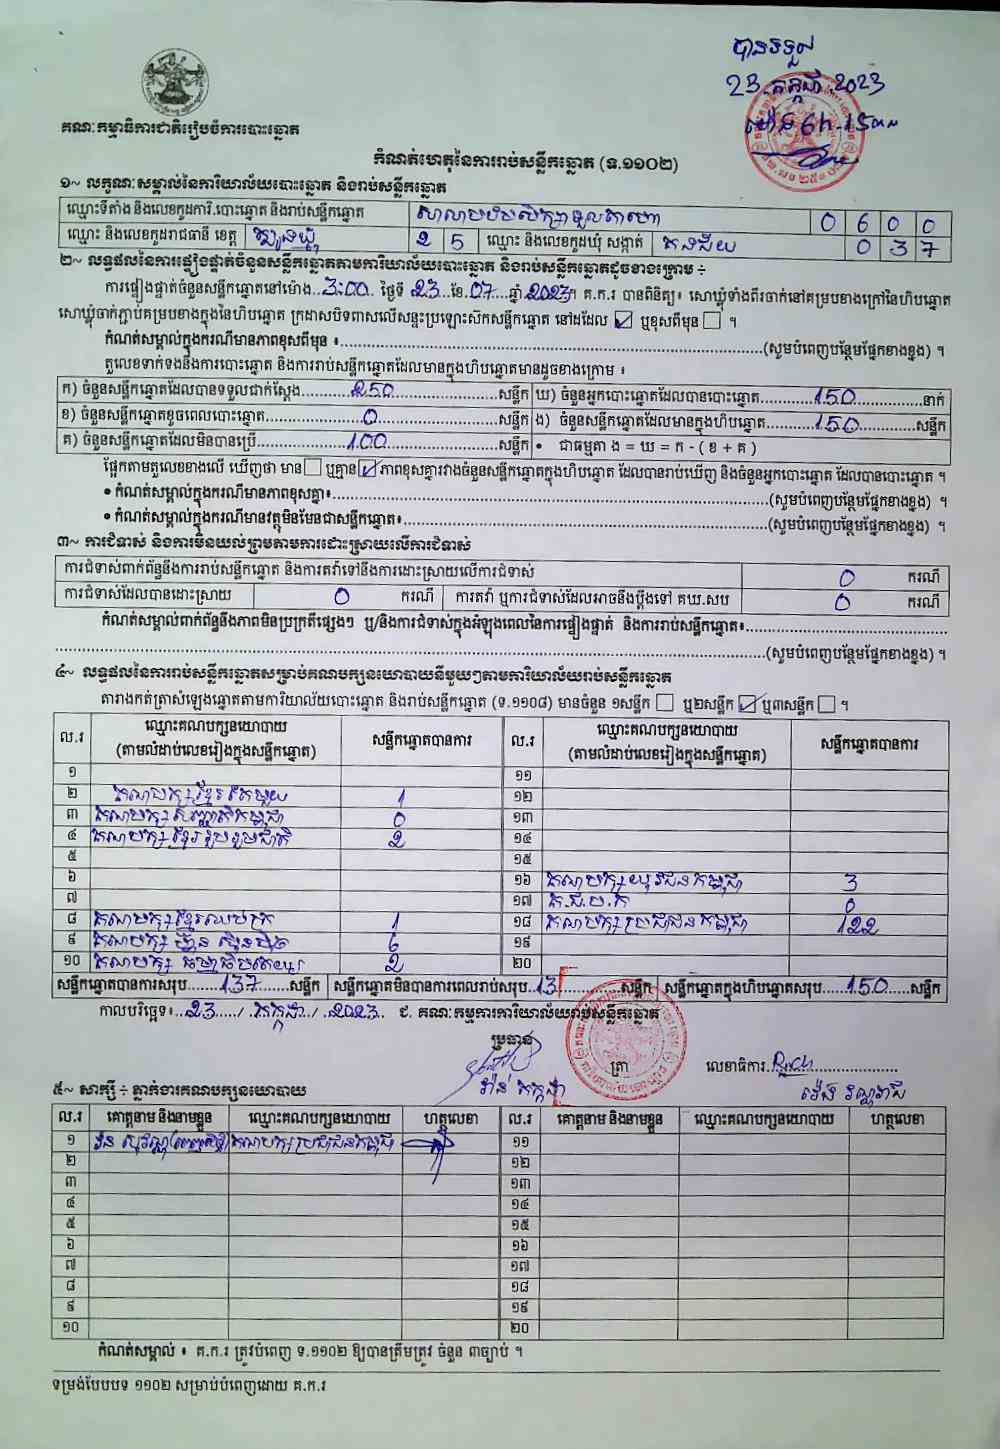 បានទទួល
23 កក្កដា 2023
ម៉ោង 6h:15
គណៈកម្មាធិការជាតិរៀបចំការបោះឆ្នោត
កំណត់ហេតុនៃការរាប់សន្លឹកឆ្នោត (ទ.១១០២)
១~ លក្ខណៈសម្គាល់នៃការិយាល័យបោះឆ្នោត និងរាប់សន្លឹកឆ្នោត
ឈ្មោះទីតាំង និងលេខកូដការិ.បោះឆ្នោត និងរាប់សន្លឹកឆ្នោត 0 6 0 0
ឈ្មោះ និងលេខកូដរាជធានី ខេត្ត ត្បូងឃ្មុំ 2 5 ឈ្មោះ និងលេខកូដឃុំ សង្កាត់ គងជ័យ 0 3 7
២~ លទ្ធផលនៃការផ្ទៀងផ្ទាត់ចំនួនសន្លឹកឆ្នោតតាមការិយាល័យបោះឆ្នោត និងរាប់សន្លឹកឆ្នោតដូចខាងក្រោម ÷
ការផ្ទៀងផ្ទាត់ចំនួនសន្លឹកឆ្នោតនៅម៉ោង 3:00 ថ្ងៃទី 23 ខែ 07 ឆ្នាំ 2023 ។ គ.ក.រ បានពិនិត្យ៖ សោឃ្លុំទាំងពីរចាក់នៅគម្របខាងក្រៅនៃហិបឆ្នោត
សោឃ្លុំចាក់ភ្ជាប់គម្របខាងក្នុងនៃហិបឆ្នោត ក្រដាសបិទពាសលើសន្ទះប្រឡោះស៊កសន្លឹកឆ្នោត នៅដដែល ☑ ឬខុសពីមុន ☐ ។
កំណត់សម្គាល់ក្នុងករណីមានភាពខុសពីមុន ៖ (សូមបំពេញបន្ថែមផ្នែកខាងខ្នង) ។
តួលេខទាក់ទងនឹងការបោះឆ្នោត និងការរាប់សន្លឹកឆ្នោតដែលមានក្នុងហិបឆ្នោតមានដូចខាងក្រោម ៖
ក) ចំនួនសន្លឹកឆ្នោតដែលបានទទួលជាក់ស្តែង 250 សន្លឹក ឃ) ចំនួនអ្នកបោះឆ្នោតដែលបានបោះឆ្នោត 150 នាក់
ខ) ចំនួនសន្លឹកឆ្នោតខូចពេលបោះឆ្នោត 0 សន្លឹក ង) ចំនួនសន្លឹកឆ្នោតដែលមានក្នុងហិបឆ្នោត 150 សន្លឹក
គ) ចំនួនសន្លឹកឆ្នោតដែលមិនបានប្រើ 100 សន្លឹក • ជាធម្មតា ង = ឃ = ក - ( ខ + គ )
ផ្អែកតាមតួលេខខាងលើ ឃើញថា មាន ☐ ឬគ្មាន ☑ ភាពខុសគ្នារវាងចំនួនសន្លឹកឆ្នោតក្នុងហិបឆ្នោត ដែលបានរាប់ឃើញ និងចំនួនអ្នកបោះឆ្នោត ដែលបានបោះឆ្នោត ។
• កំណត់សម្គាល់ក្នុងករណីមានភាពខុសគ្នា៖ (សូមបំពេញបន្ថែមផ្នែកខាងខ្នង) ។
• កំណត់សម្គាល់ក្នុងករណីមានវត្ថុមិនមែនជាសន្លឹកឆ្នោត៖ (សូមបំពេញបន្ថែមផ្នែកខាងខ្នង) ។
៣~ ការជំទាស់ និងការមិនយល់ព្រមតាមការដោះស្រាយលើការជំទាស់
ការជំទាស់ពាក់ព័ន្ធនឹងការរាប់សន្លឹកឆ្នោត និងការតវ៉ាទៅនឹងការដោះស្រាយលើការជំទាស់ 0 ករណី
ការជំទាស់ដែលបានដោះស្រាយ 0 ករណី ការតវ៉ា ឬការជំទាស់ដែលអាចនឹងប្តឹងទៅ គឃ.សប 0 ករណី
កំណត់សម្គាល់ពាក់ព័ន្ធនឹងភាពមិនប្រក្រតីផ្សេងៗ ឬ/និងការជំទាស់ក្នុងអំឡុងពេលនៃការផ្ទៀងផ្ទាត់ និងការរាប់សន្លឹកឆ្នោត៖
(សូមបំពេញបន្ថែមផ្នែកខាងខ្នង) ។
៤~ លទ្ធផលនៃការរាប់សន្លឹកឆ្នោតសម្រាប់គណបក្សនយោបាយនីមួយៗតាមការិយាល័យរាប់សន្លឹកឆ្នោត
តារាងកត់ត្រាសំឡេងឆ្នោតតាមការិយាល័យបោះឆ្នោត និងរាប់សន្លឹកឆ្នោត (ទ.១១០៨) មានចំនួន ១សន្លឹក ☐ ឬ២សន្លឹក ☑ ឬ៣សន្លឹក ☐ ។
ល.រ ឈ្មោះគណបក្សនយោបាយ (តាមលំដាប់លេខរៀងក្នុងសន្លឹកឆ្នោត) សន្លឹកឆ្នោតបានការ ល.រ ឈ្មោះគណបក្សនយោបាយ (តាមលំដាប់លេខរៀងក្នុងសន្លឹកឆ្នោត) សន្លឹកឆ្នោតបានការ
១ ១១
២ គណបក្សខ្មែរតែមួយ 1 ១២
៣ គណបក្សសញ្ជាតិកម្ពុជា 0 ១៣
៤ គណបក្សខ្មែររួបរួមជាតិ 2 ១៤
៥ ១៥
៦ ១៦ គណបក្សយុវជនកម្ពុជា 3
៧ ១៧ គ.ជ.ប.ក 0
៨ គណបក្សខ្មែរឈប់ក្រ 1 ១៨ គណបក្សប្រជាជនកម្ពុជា 122
៩ គណបក្ស ហ្វ៊ុនស៊ិនប៉ិច 6 ១៩
១០ គណបក្ស ធម្មាធិបតេយ្យ 2 ២០
សន្លឹកឆ្នោតបានការសរុប 137 សន្លឹក សន្លឹកឆ្នោតមិនបានការពេលរាប់សរុប 13 សន្លឹក សន្លឹកឆ្នោតក្នុងហិបឆ្នោតសរុប 150 សន្លឹក
កាលបរិច្ឆេទ៖ 23 / កក្កដា / 2023 ជ. គណៈកម្មការការិយាល័យរាប់សន្លឹកឆ្នោត
ប្រធាន
ត្រា លេខាធិការ
វ៉ាន់ កក្កដា
៥~ សាក្សី ÷ ភ្នាក់ងារគណបក្សនយោបាយ
ល.រ គោត្តនាម និងនាមខ្លួន ឈ្មោះគណបក្សនយោបាយ ហត្ថលេខា ល.រ គោត្តនាម និងនាមខ្លួន ឈ្មោះគណបក្សនយោបាយ ហត្ថលេខា
១ គណបក្សប្រជាជនកម្ពុជា ១១
២ ១២
៣ ១៣
៤ ១៤
៥ ១៥
៦ ១៦
៧ ១៧
៨ ១៨
៩ ១៩
១០ ២០
កំណត់សម្គាល់ ៖ គ.ក.រ ត្រូវបំពេញ ទ.១១០២ ឱ្យបានត្រឹមត្រូវ ចំនួន ៣ច្បាប់ ។
ទម្រង់បែបបទ ១១០២ សម្រាប់បំពេញដោយ គ.ក.រ